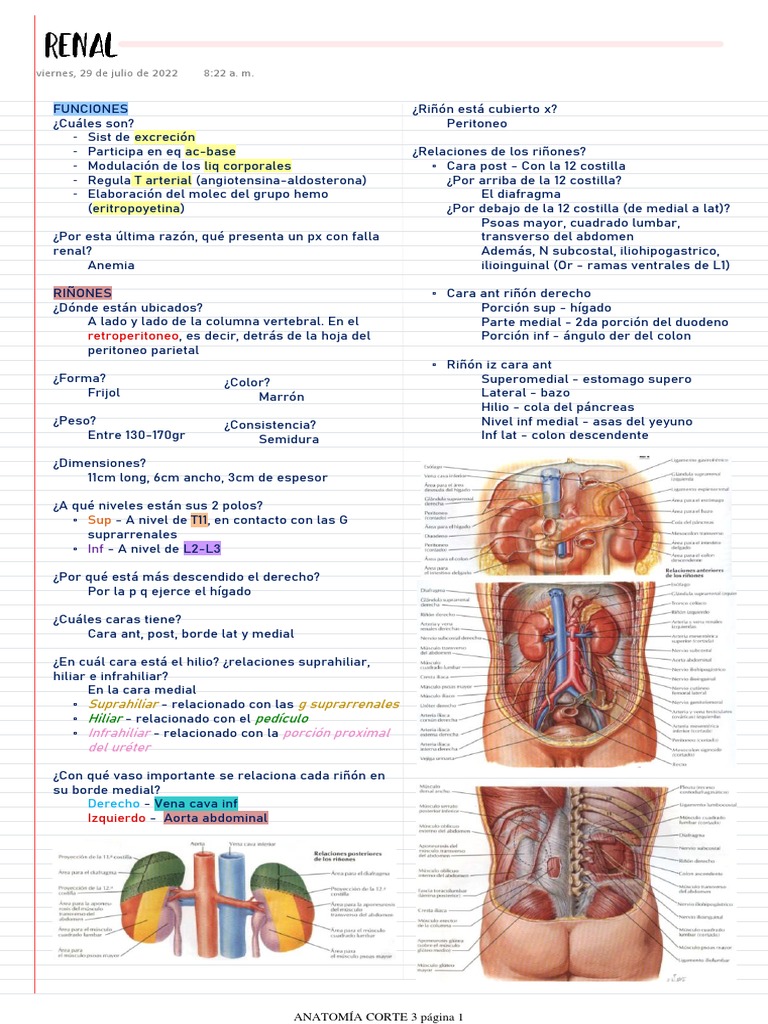 RENAL
viernes, 29 de julio de 2022 8:22 a. m.
FUNCIONES
¿Cuáles son?
- Sist de excreción
- Participa en eq ac-base
- Modulación de los liq corporales
- Regula T arterial (angiotensina-aldosterona)
- Elaboración del molec del grupo hemo
(eritropoyetina)
¿Por esta última razón, qué presenta un px con falla
renal?
Anemia
RIÑONES
¿Dónde están ubicados?
A lado y lado de la columna vertebral. En el
retroperitoneo, es decir, detrás de la hoja del
peritoneo parietal
¿Forma?
Frijol
¿Color?
Marrón
¿Peso?
Entre 130-170gr
¿Consistencia?
Semidura
¿Dimensiones?
11cm long, 6cm ancho, 3cm de espesor
¿A qué niveles están sus 2 polos?
• Sup - A nivel de T11, en contacto con las G
suprarrenales
• Inf - A nivel de L2-L3
¿Por qué está más descendido el derecho?
Por la p q ejerce el hígado
¿Cuáles caras tiene?
Cara ant, post, borde lat y medial
¿En cuál cara está el hilio? ¿relaciones suprahiliar,
hiliar e infrahiliar?
En la cara medial
• Suprahiliar - relacionado con las g suprarrenales
• Hiliar - relacionado con el pedículo
• Infrahiliar - relacionado con la porción proximal
del uréter
¿Con qué vaso importante se relaciona cada riñón en
su borde medial?
Derecho - Vena cava inf
Izquierdo - Aorta abdominal
Aorta
Vena cava inferior
Relaciones posteriores
de los riñones
Proyección de la 11.ª costilla
Área para el diafragma
Proyección de la 12.ª
costilla
Área para la aponeurosis
del músculo
transverso del
abdomen
Área para el músculo
cuadrado lumbar
Área para
el músculo psoas mayor
Área para el diafragma
Proyección de la 12.ª
costilla
Área para la aponeurosis
del músculo
transverso del abdomen
Área para el músculo
cuadrado lumbar
Área para
el músculo psoas mayor
¿Riñón está cubierto x?
Peritoneo
¿Relaciones de los riñones?
• Cara post - Con la 12 costilla
¿Por arriba de la 12 costilla?
El diafragma
¿Por debajo de la 12 costilla (de medial a lat)?
Psoas mayor, cuadrado lumbar,
transverso del abdomen
Además, N subcostal, iliohipogastrico,
ilioinguinal (Or - ramas ventrales de L1)
• Cara ant riñón derecho
Porción sup - hígado
Parte medial - 2da porción del duodeno
Porción inf - ángulo der del colon
• Riñón iz cara ant
Superomedial - estomago supero
Lateral - bazo
Hilio - cola del páncreas
Nivel inf medial - asas del yeyuno
Inf lat - colon descendente
Esófago
Vena cava inferior
Duodeno
Área para el colon
Área para el estómago
Área para el bazo
Cola del páncreas
Mesocolon transverso
Relaciones anteriores
de los riñones
Diafragma
Riñón derecho
Nervio subcostal derecho
Cresta ilíaca
Uréter derecho
Vejiga urinaria
Esófago
Tronco celíaco
Riñón izquierdo
Músculo subcostal
Aorta abdominal
Nervio iliohipogástrico
Nervio ilioinguinal
Nervio genitofemoral
Recto
Cresta ilíaca
Diafragma
Nervio subcostal
Riñón derecho
Colon ascendente
Nervio iliohipogástrico
Nervio ilioinguinal
Músculo psoas mayor
Ligamento iliolumbar
ANATOMÍA CORTE 3 página 1